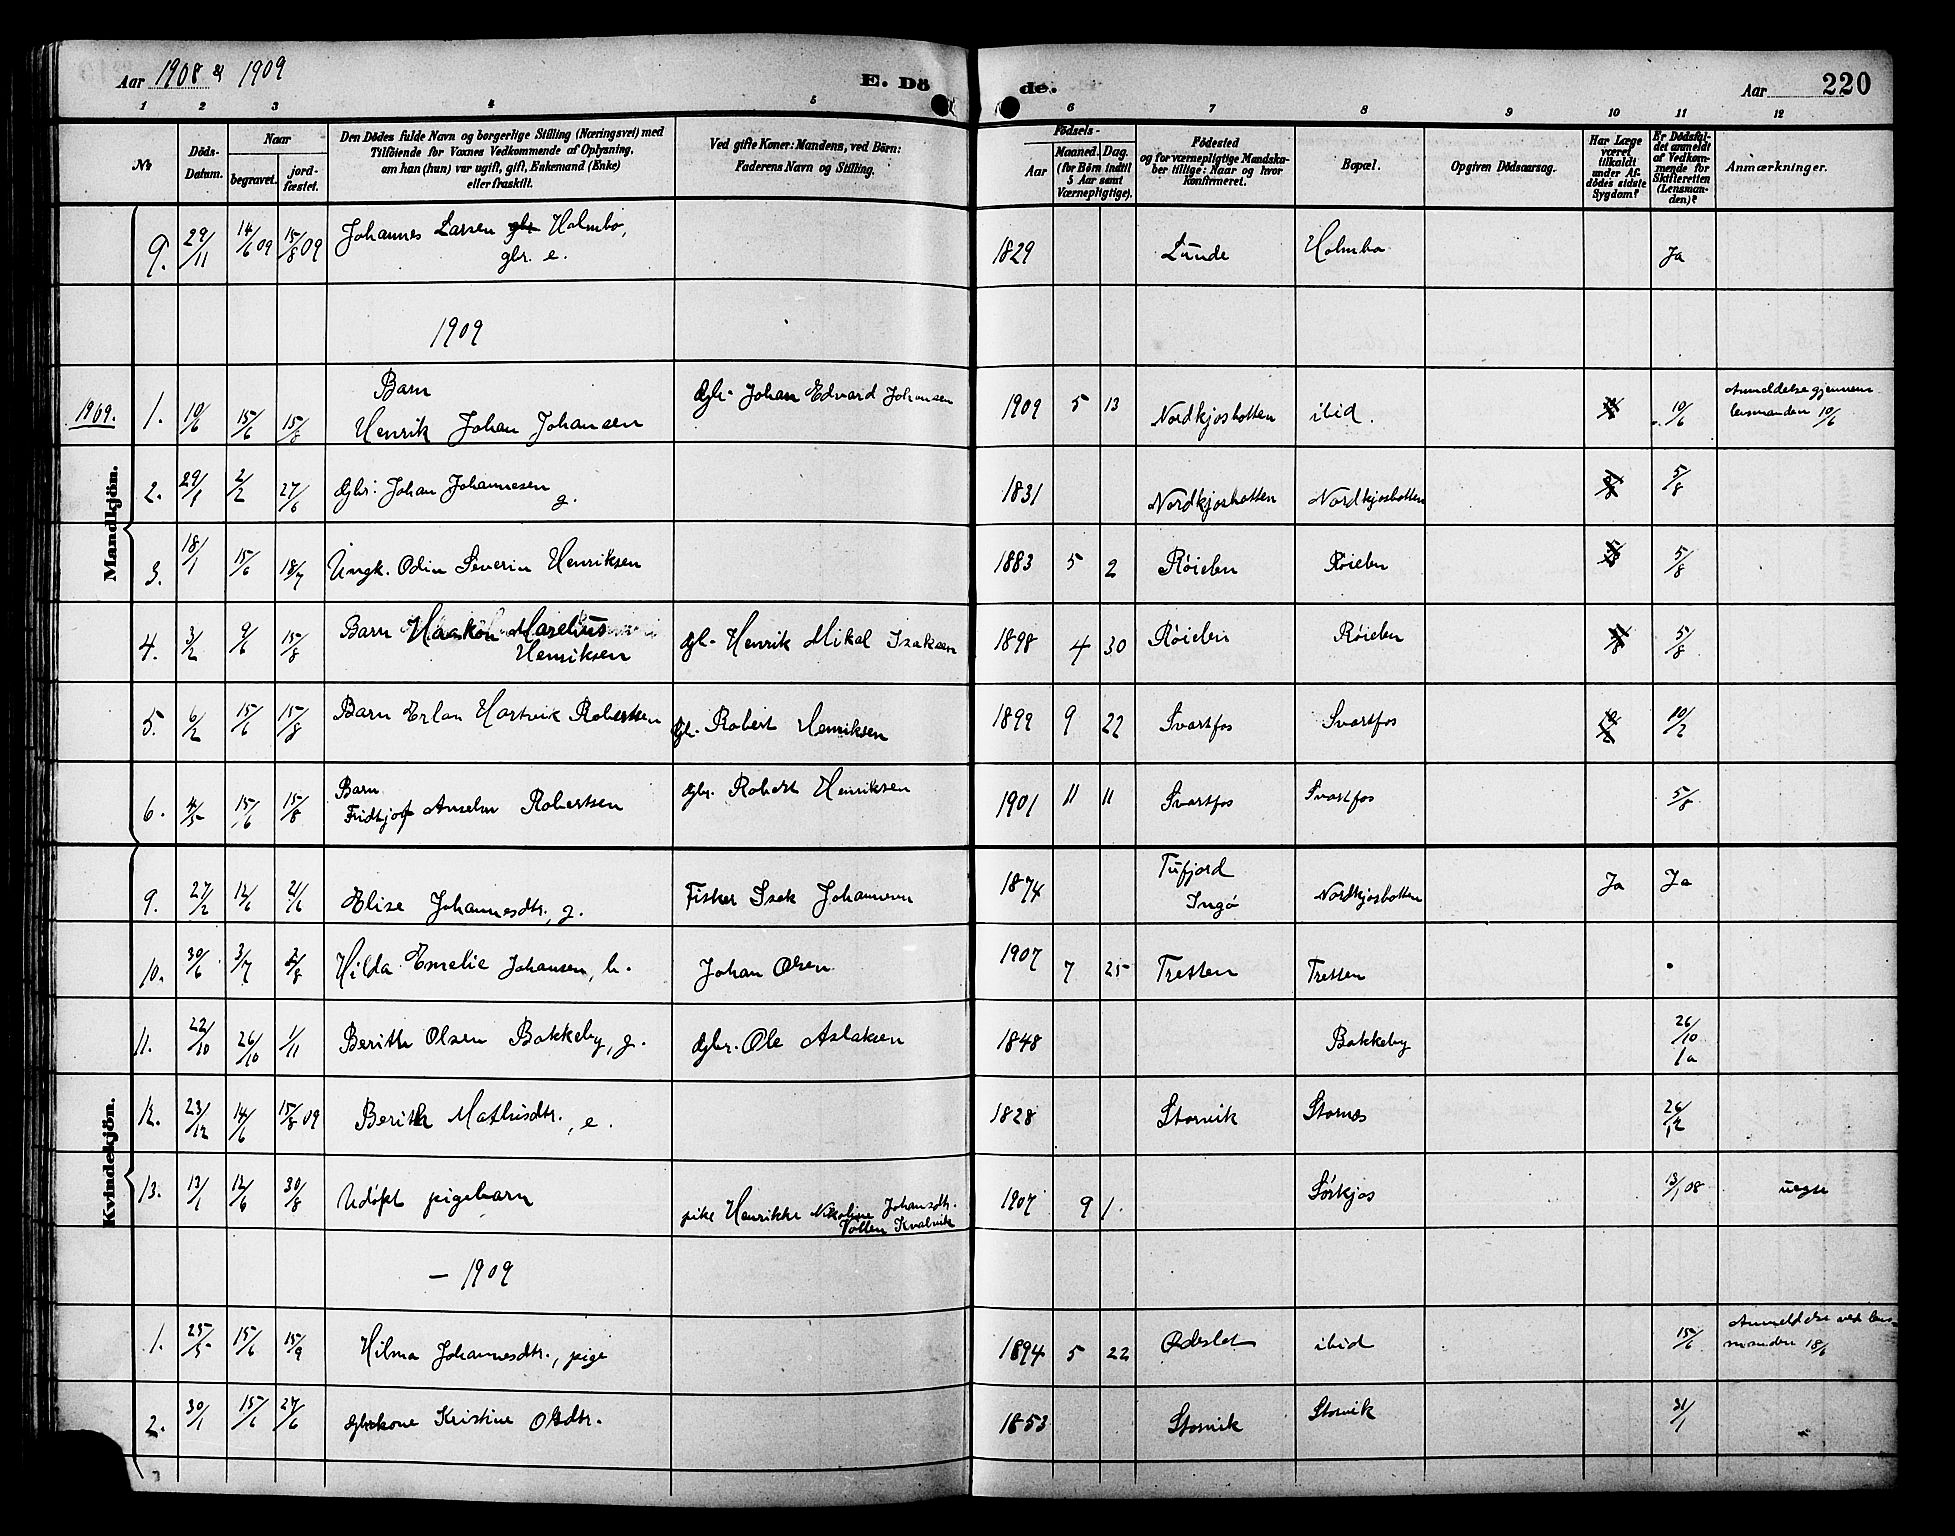 Aar 1908 & 1909 E. Dö de. Aar 220
1 2 3 4 5 6 7 8 9 10 11 12
No
Döds-Datum.
Naar
begravet.
jord-fæstet.
Den Dödes fulde Navn og borgerlige Stilling (Næringsvei) med
Tilföiende for Voxnes Vedkommende af Oplysning,
om han (hun) var ugift, gift, Enkemand (Enke)
eller fraskilt.
Ved gifte Koner: Mandens, ved Börn:
Faderens Navn og Stilling.
Födsels-
Aar
Maaned. Dag.
(for Børn indtil
5 Aar samt
Værnepligtige).
Födested
og for værnepligtige Mandska-
ber tillige: Naar og hvor
Konfirmeret.
Bopæl.
Opgiven Dödsaarsag.
Har Læge
været
tilkaldt
under Af-
dödes sidste
Sygdom?
Er Dödsfal-
det anmeldt
af Vedkom-
mende for
Skifteretten
(Lensman-
den)?
Anmærkninger.
9. 29/11 14/6 09 15/8 09 Johannes Larsen gbr Holmbo, 1829 Lunde Holmbo Ja
gbr. e.
1909
1909. Mandkjön.
Barn
1. 10/6 15/6 15/8 Henrik Johan Johansen gbr. Johan Edvard Johansen 1909 5 13 Nordkjosbotten ibid. 10/6 Anmeldelse gjennem
lensmanden 10/6
2. 29/1 2/2 27/6 gbr. Johan Johannesen g. 1831 Nordkjosbotten Nordkjosbotten 5/8
3. 18/1 15/6 18/7 Ungk. Odin Severin Henriksen 1883 5 2 Røielen Røielen 5/8
4. 3/2 9/6 15/8 Barn Haakon Marelius gbr. Henrik Mikal Isaksen 1898 4 30 Røielen Røielen 5/8
Henriksen
5. 6/2 15/6 15/8 Barn Erlan Hartvik Robertsen gbr. Robert Henriksen 1899 9 22 Svartfos Svartfos 10/2
Barn
6. 4/5 15/6 15/8 Fridtjof Anselm Robertsen gbr. Robert Henriksen 1901 11 11 Svartfos Svartfos 5/8
Kvindekjön.
9. 27/2 12/6 21/6 Elise Johannesdtr., g. Fisker Isak Johannesen 1874 Tufjord
Ingö Nordkjosbotten Ja Ja
10. 30/6 3/7 2/8 Hilda Emelie Johansen, b. Johan Olsen 1907 7 25 Tretten Tretten
11. 22/10 26/10 1/11 Berith Olsen Bakkeby, g. gbr. Ole Aslaksen 1848 Bakkeby 26/10
Ja
12. 23/12 14/6 15/8 09 Berith Mathisdtr., e. 1828 Storvik Stornes 26/12
13. 13/1 12/6 30/8 Udöpt pigebarn pike Henrikke Nikoline Johansdtr. 1907 9 1. Sörkjos 13/1 08 uegte
Vollen Kvalvik
— 1909
1. 25/5 15/6 15/9 Hilma Johannesdtr., pige 1894 5 22 Odeslet ibid 15/6 Anmeldelse ved lens-
manden 18/6
2. 30/1 15/6 27/6 gbrkone Kristine Olsdtr. 1853 Storvik Storvik 31/1